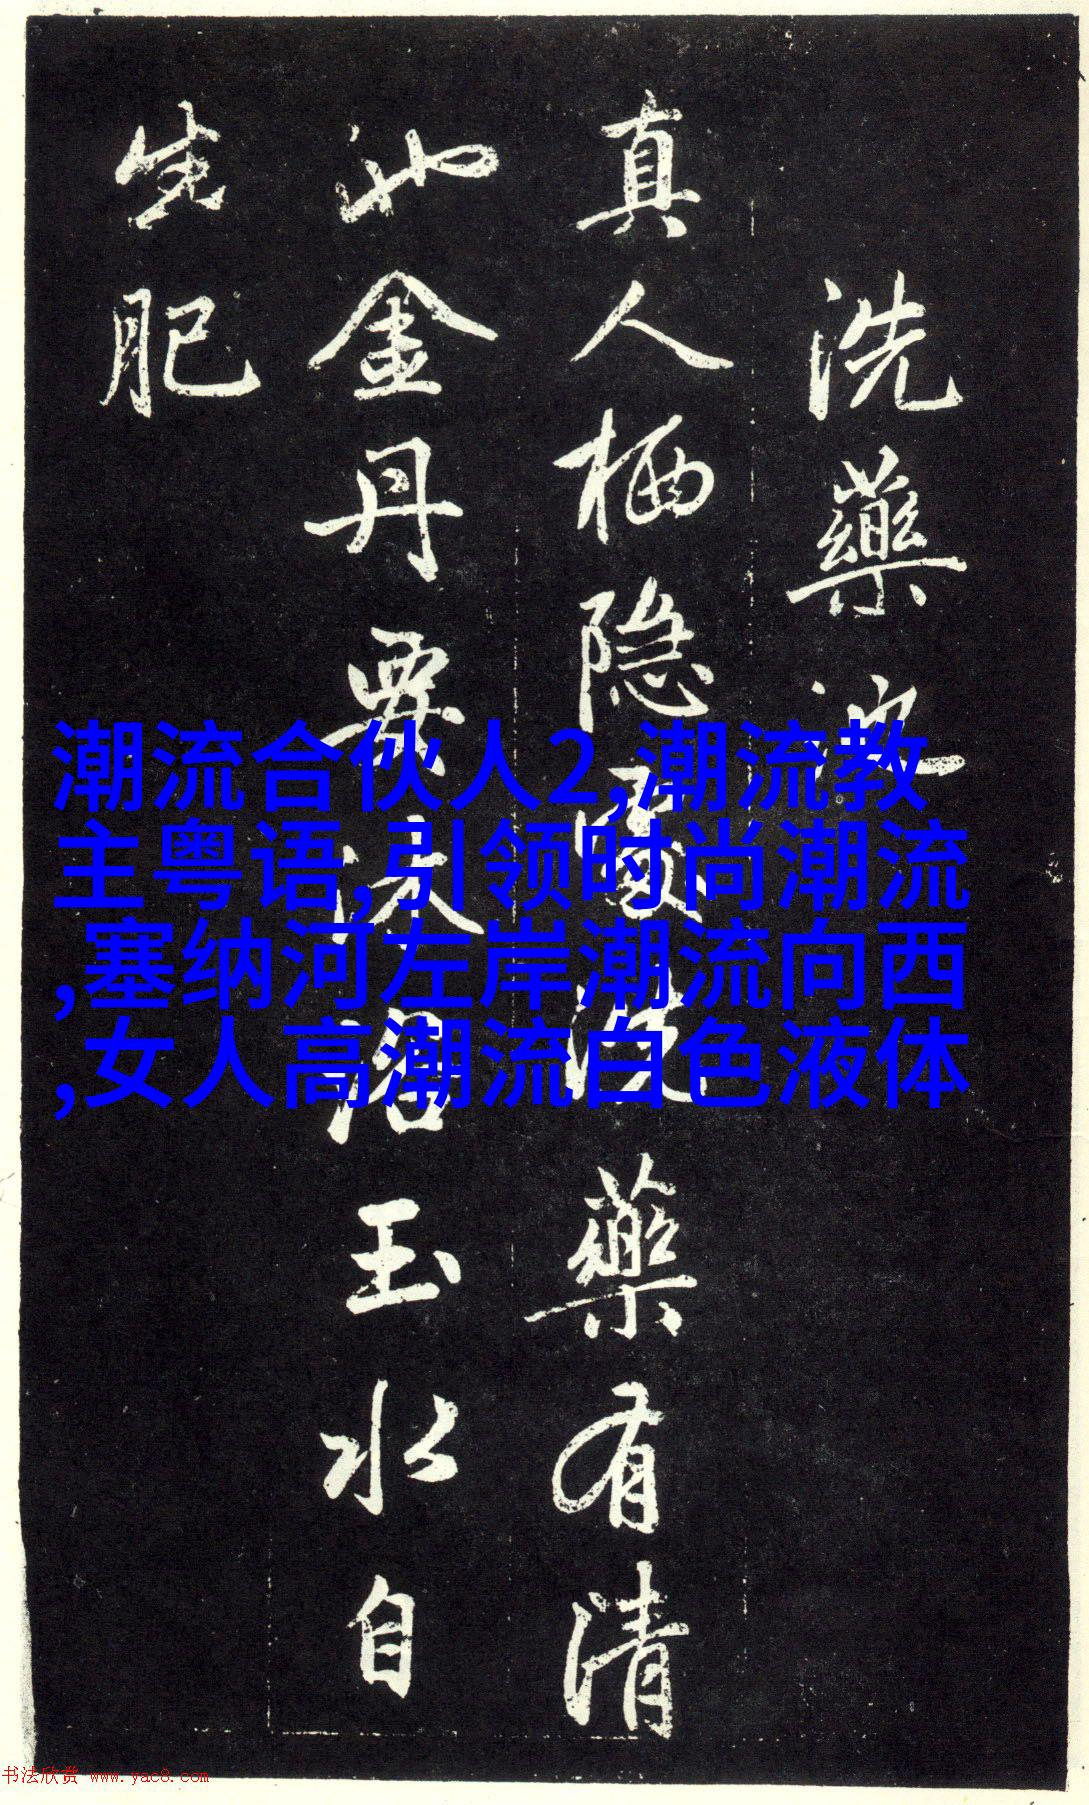 洗藥池
真人栖隐處洗藥有清
池金丹要沐浴玉水自
生肥
潮流合伙人2,潮流教
主粤语,引领时尚潮流
,塞纳河左岸潮流向西
,女人高潮流白色液体
书法欣赏 www.yac8.com